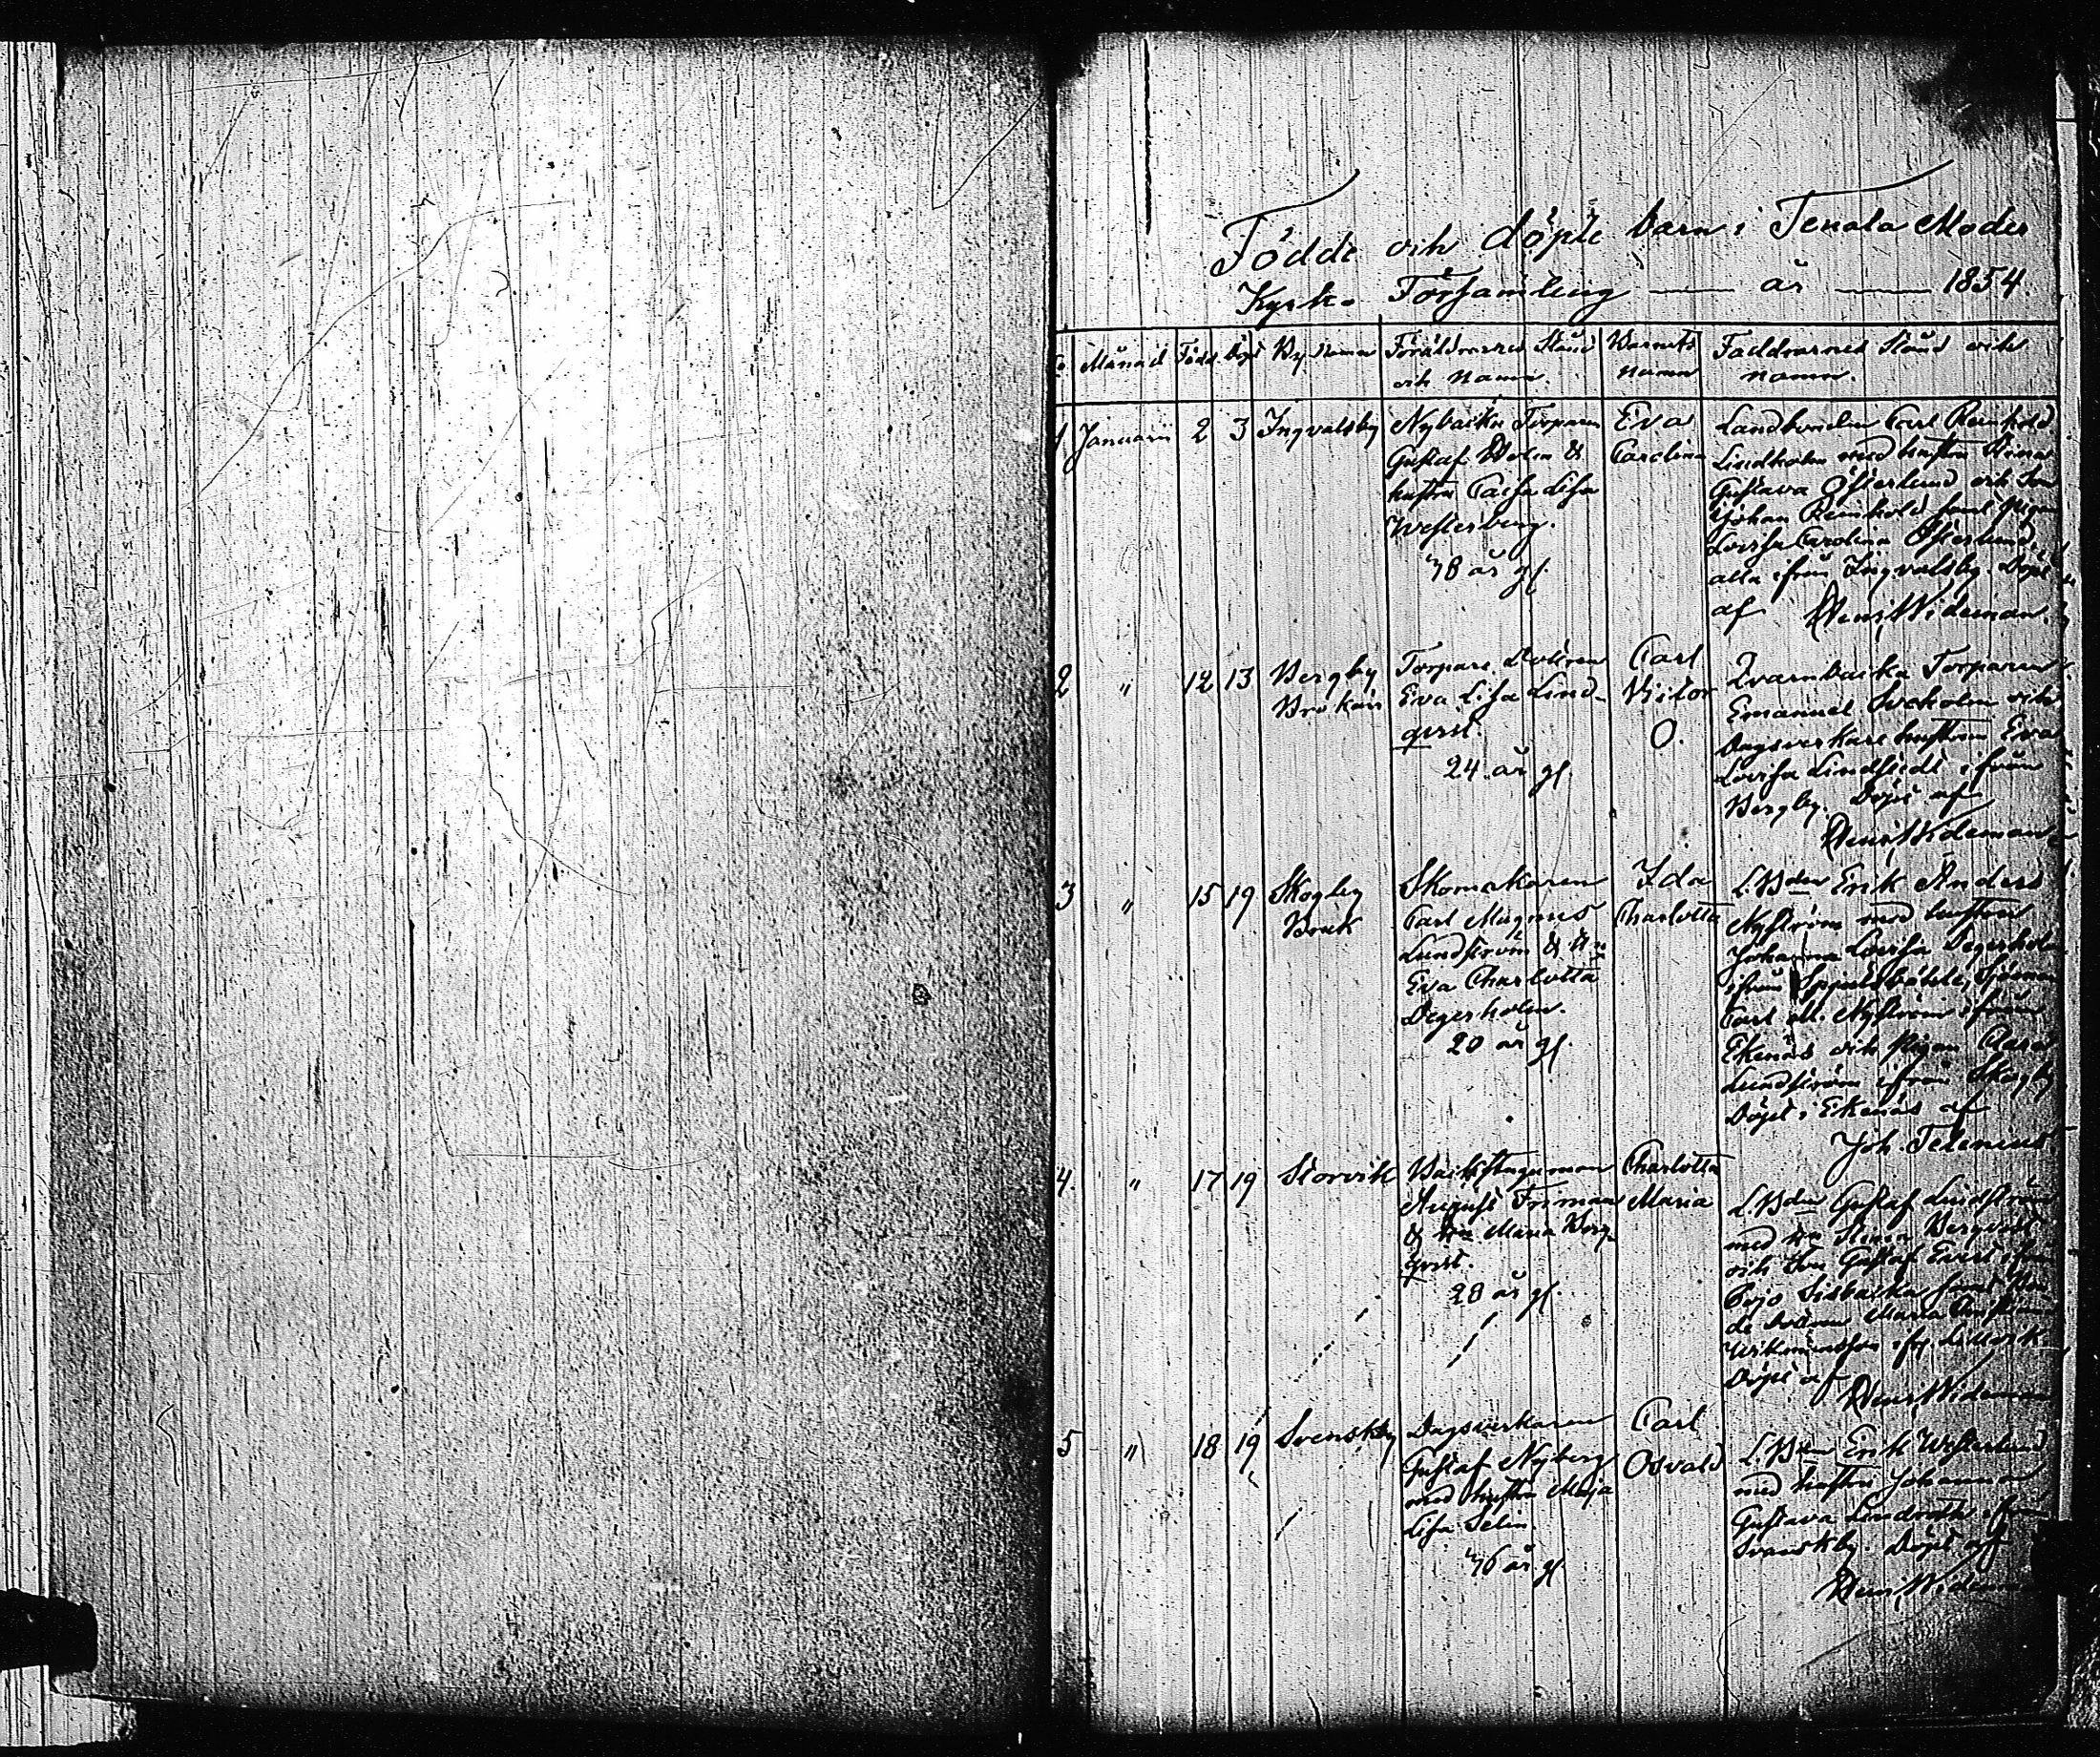 Födde och döpte barn i Tenala Moder
Kyrko Församling — år — 1854
No Månad Född Döpt By namn Föräldrarnes Stånd och namn. Barnets namn Faddrarnes Stånd och namn.
1 Januarii 2 3 Ingvalsby
Torparen
Gustaf & hustru Caisa Lisa
Westerberg.
år gl.
Eva
Carolina
Landbonden Carl Reinhold
Lindholm med hustru Stina
Gustava Österlund och Son
Johan Reinhold samt Pigan
Lovisa Carolina Österlund,
alla ifrån Ingvalsby. Döpt
af Henr. Wideman.
2 " 12 13 Bergby
Torpare Dottren
Eva Lisa Lind-
qvist.
24 år gl.
Carl
Victor
O.
Qvarnbacka Torparen
Emanuel och
Dagsverkare hustrun Eva
Lovisa Lindstedt ifrån
Bergby. Döpt af
Henr. Wideman
3 " 15 19 Skogby
Bruk
Skomakaren
Carl Magnus
Lundström & Hu
Eva Charlotta
Degerholm.
20 år gl.
Ida
Charlotta
L.Bden Erik Anders
Nyström med hustru
Johanna Lovisa Degerholm
ifrån
Carl M. Nyström ifrån
Ekenäs och Pigan
Lundström ifrån Skogby
Döpt i Ekenäs af
Joh. Telenius
4. " 17 19 Storvik
August Friman
& Hu Maria Berg-
qvist.
28 år gl.
Charlotta
Maria
L.Bden Gustaf Lindström
med Hu Stina Bergvall
och Son Gustaf Evert ifrån
Pojo samt
Maria
Döpt af Henr. Wideman
5 " 18 19 Svenskby
Dagsverkaren
Gustaf Nyberg
med hustru Maja
Lisa Selin.
46 år gl
Carl
Osvald
L.Bden Erik Westerlund
med hustru Johanna
Gustava Lindroth ifrån
Svenskby. Döpt af
Henr. Wideman